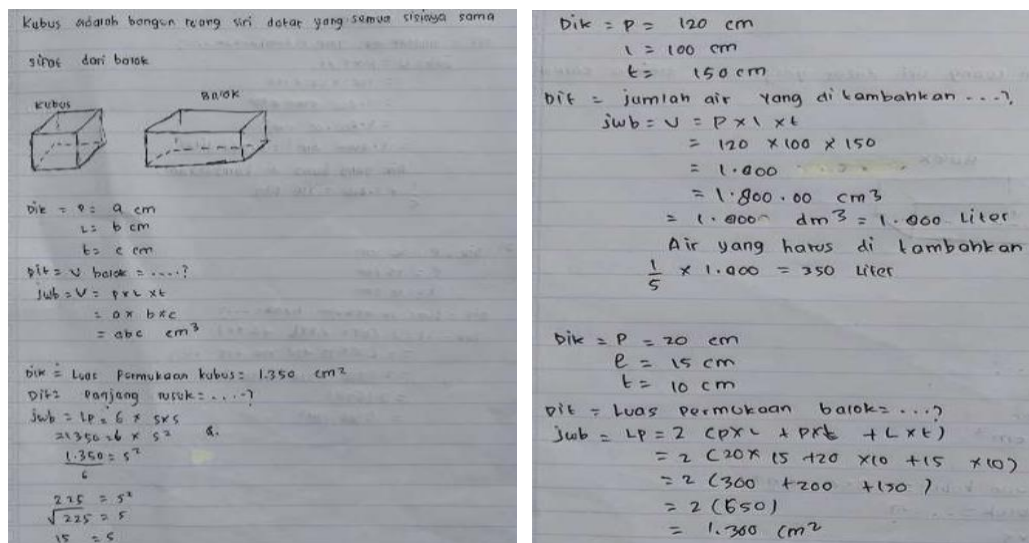 Kubus adalah bangun ruang sisi datar yang semua sisinya sama
sifat dari balok
Kubus
Balok
Dik = P = a cm
L = b cm
t = c cm
Dit = V balok = ....?
Jwb = V = p x L x t
= a x b x c
= abc cm³
Dik = Luas Permukaan kubus = 1.350 cm²
Dit = Panjang rusuk = ....?
Jwb = LP = 6 x s x s
= 1350 = 6 x s² a.
1.350 = s²
6
225 = s²
√225 = s
15 = s
Dik = P = 120 cm
l = 100 cm
t = 150 cm
Dit = jumlah air yang di tambahkan ...?
jwb = V = P x l x t
= 120 x 100 x 150
= 1.800
= 1.800.00 cm3
= 1.800 dm3 = 1.800 Liter
Air yang harus di tambahkan
1/5 x 1.800 = 350 Liter
Dik = P = 20 cm
l = 15 cm
t = 10 cm
Dit = Luas permukaan balok = ...?
Jwb = LP = 2 (PxL + Pxt + Lxt)
= 2 (20x 15 +20 x10 +15 x10)
= 2 (300 +200 +150)
= 2 (650)
= 1.300 cm²